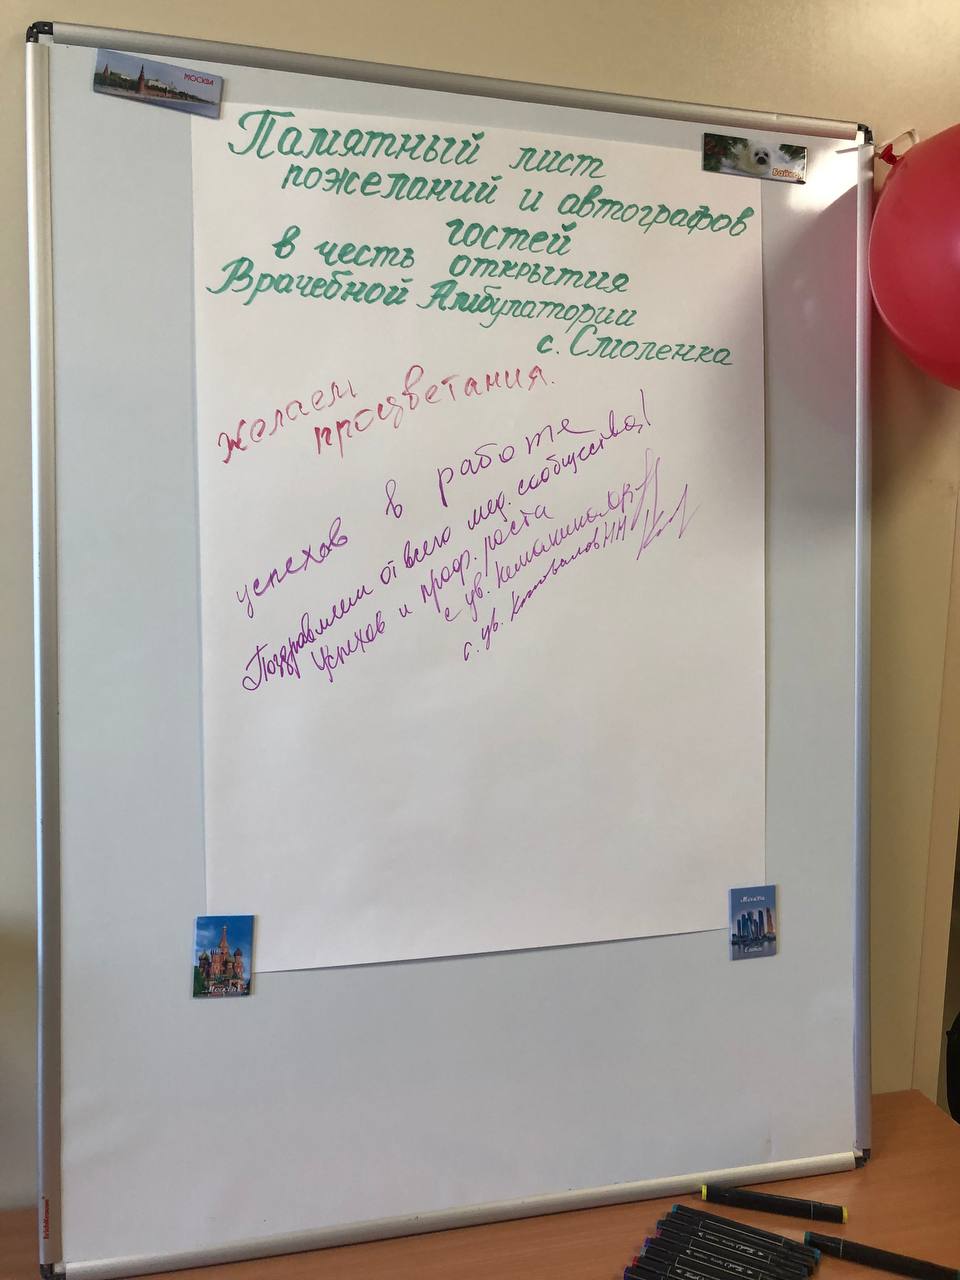 МОСКВА
Байкал
Памятный лист
пожеланий и автографов
гостей
в честь открытия
Врачебной Амбулатории
с. Смоленка
Желаем
процветания.
успехов в работе
Поздравляем от всего мед. сообщества!
Успехов и проф. роста
с ув.
с. ув. Коновалов НН
Москва
Москва
Сити
ErichKrause